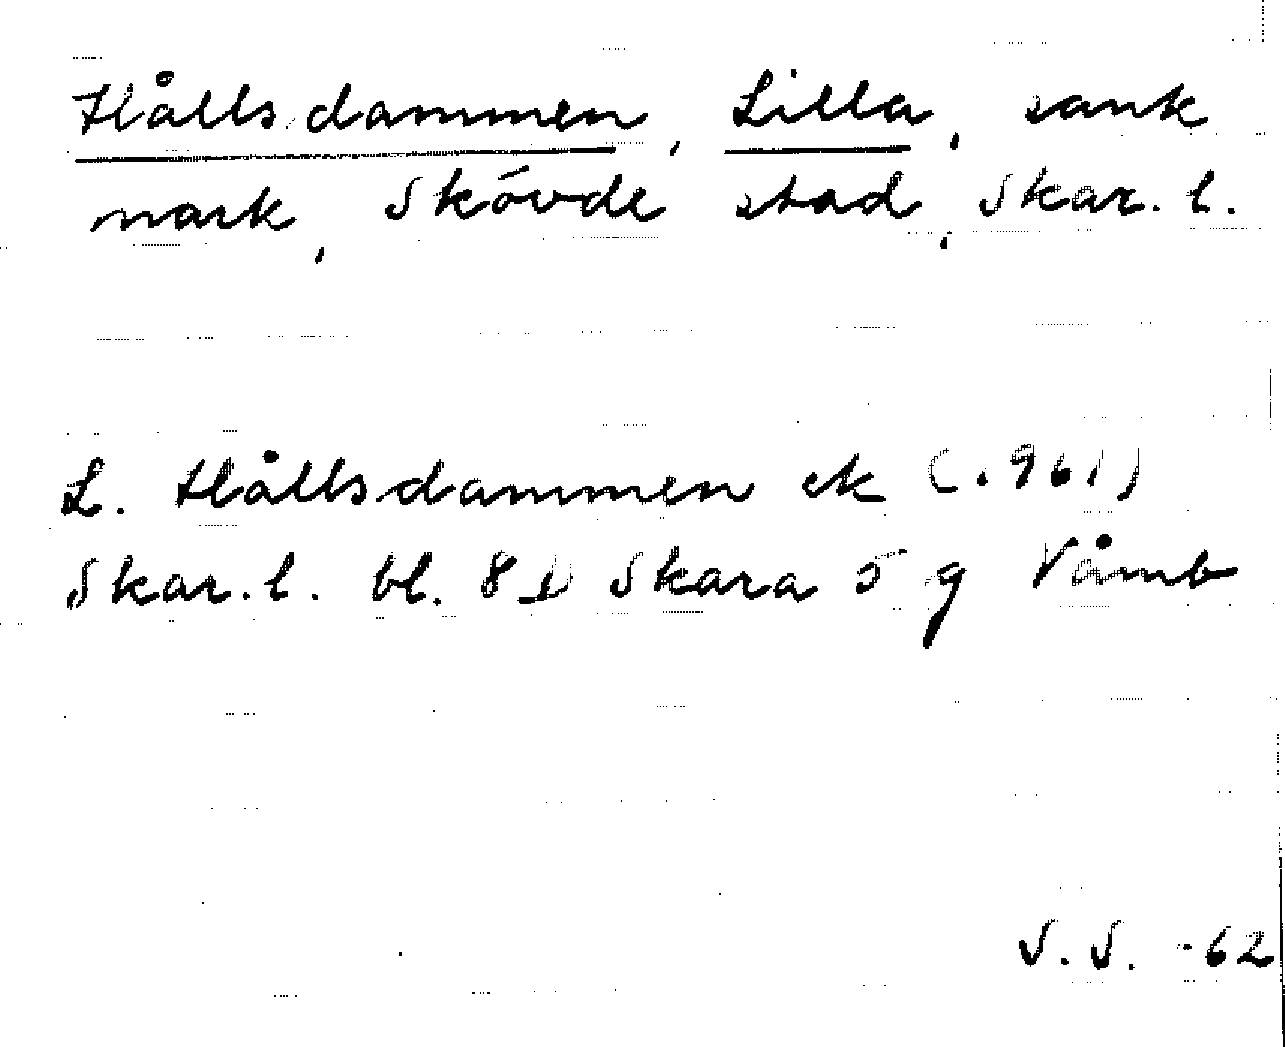 Hållsdammen, Lilla, sank
mark, Skövde stad, Skar. l.
L. Hållsdammen ek (1961)
Skar. l. bl. 8D Skara 5 g Våmb
S. S. -62